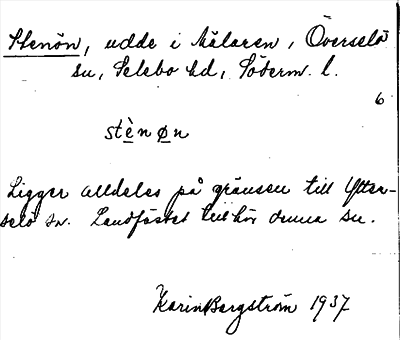 Stenön, udde i Mälaren, Överselö
sn, Selebo hd, Söderm. l.
6
stè̱nø̱n
Ligger alldeles på gränsen till Ytter-
selö sn. Landfästet tillhör denna sn.
Karin Bergström 1937